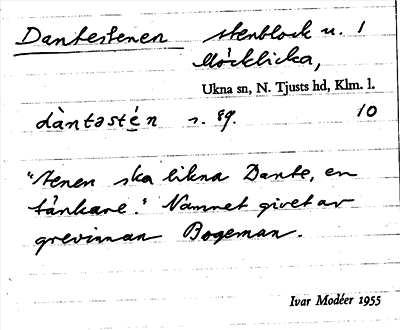 Dantestenen stenblock u. 1
Möcklicka,
Ukna sn, N. Tjusts hd, Klm. l.
dàntəsté̠n s. 89. 10
"Stenen ska likna Dante, en
tänkare." Namnet givet av
grevinnan Bogeman.
Ivar Modéer 1955